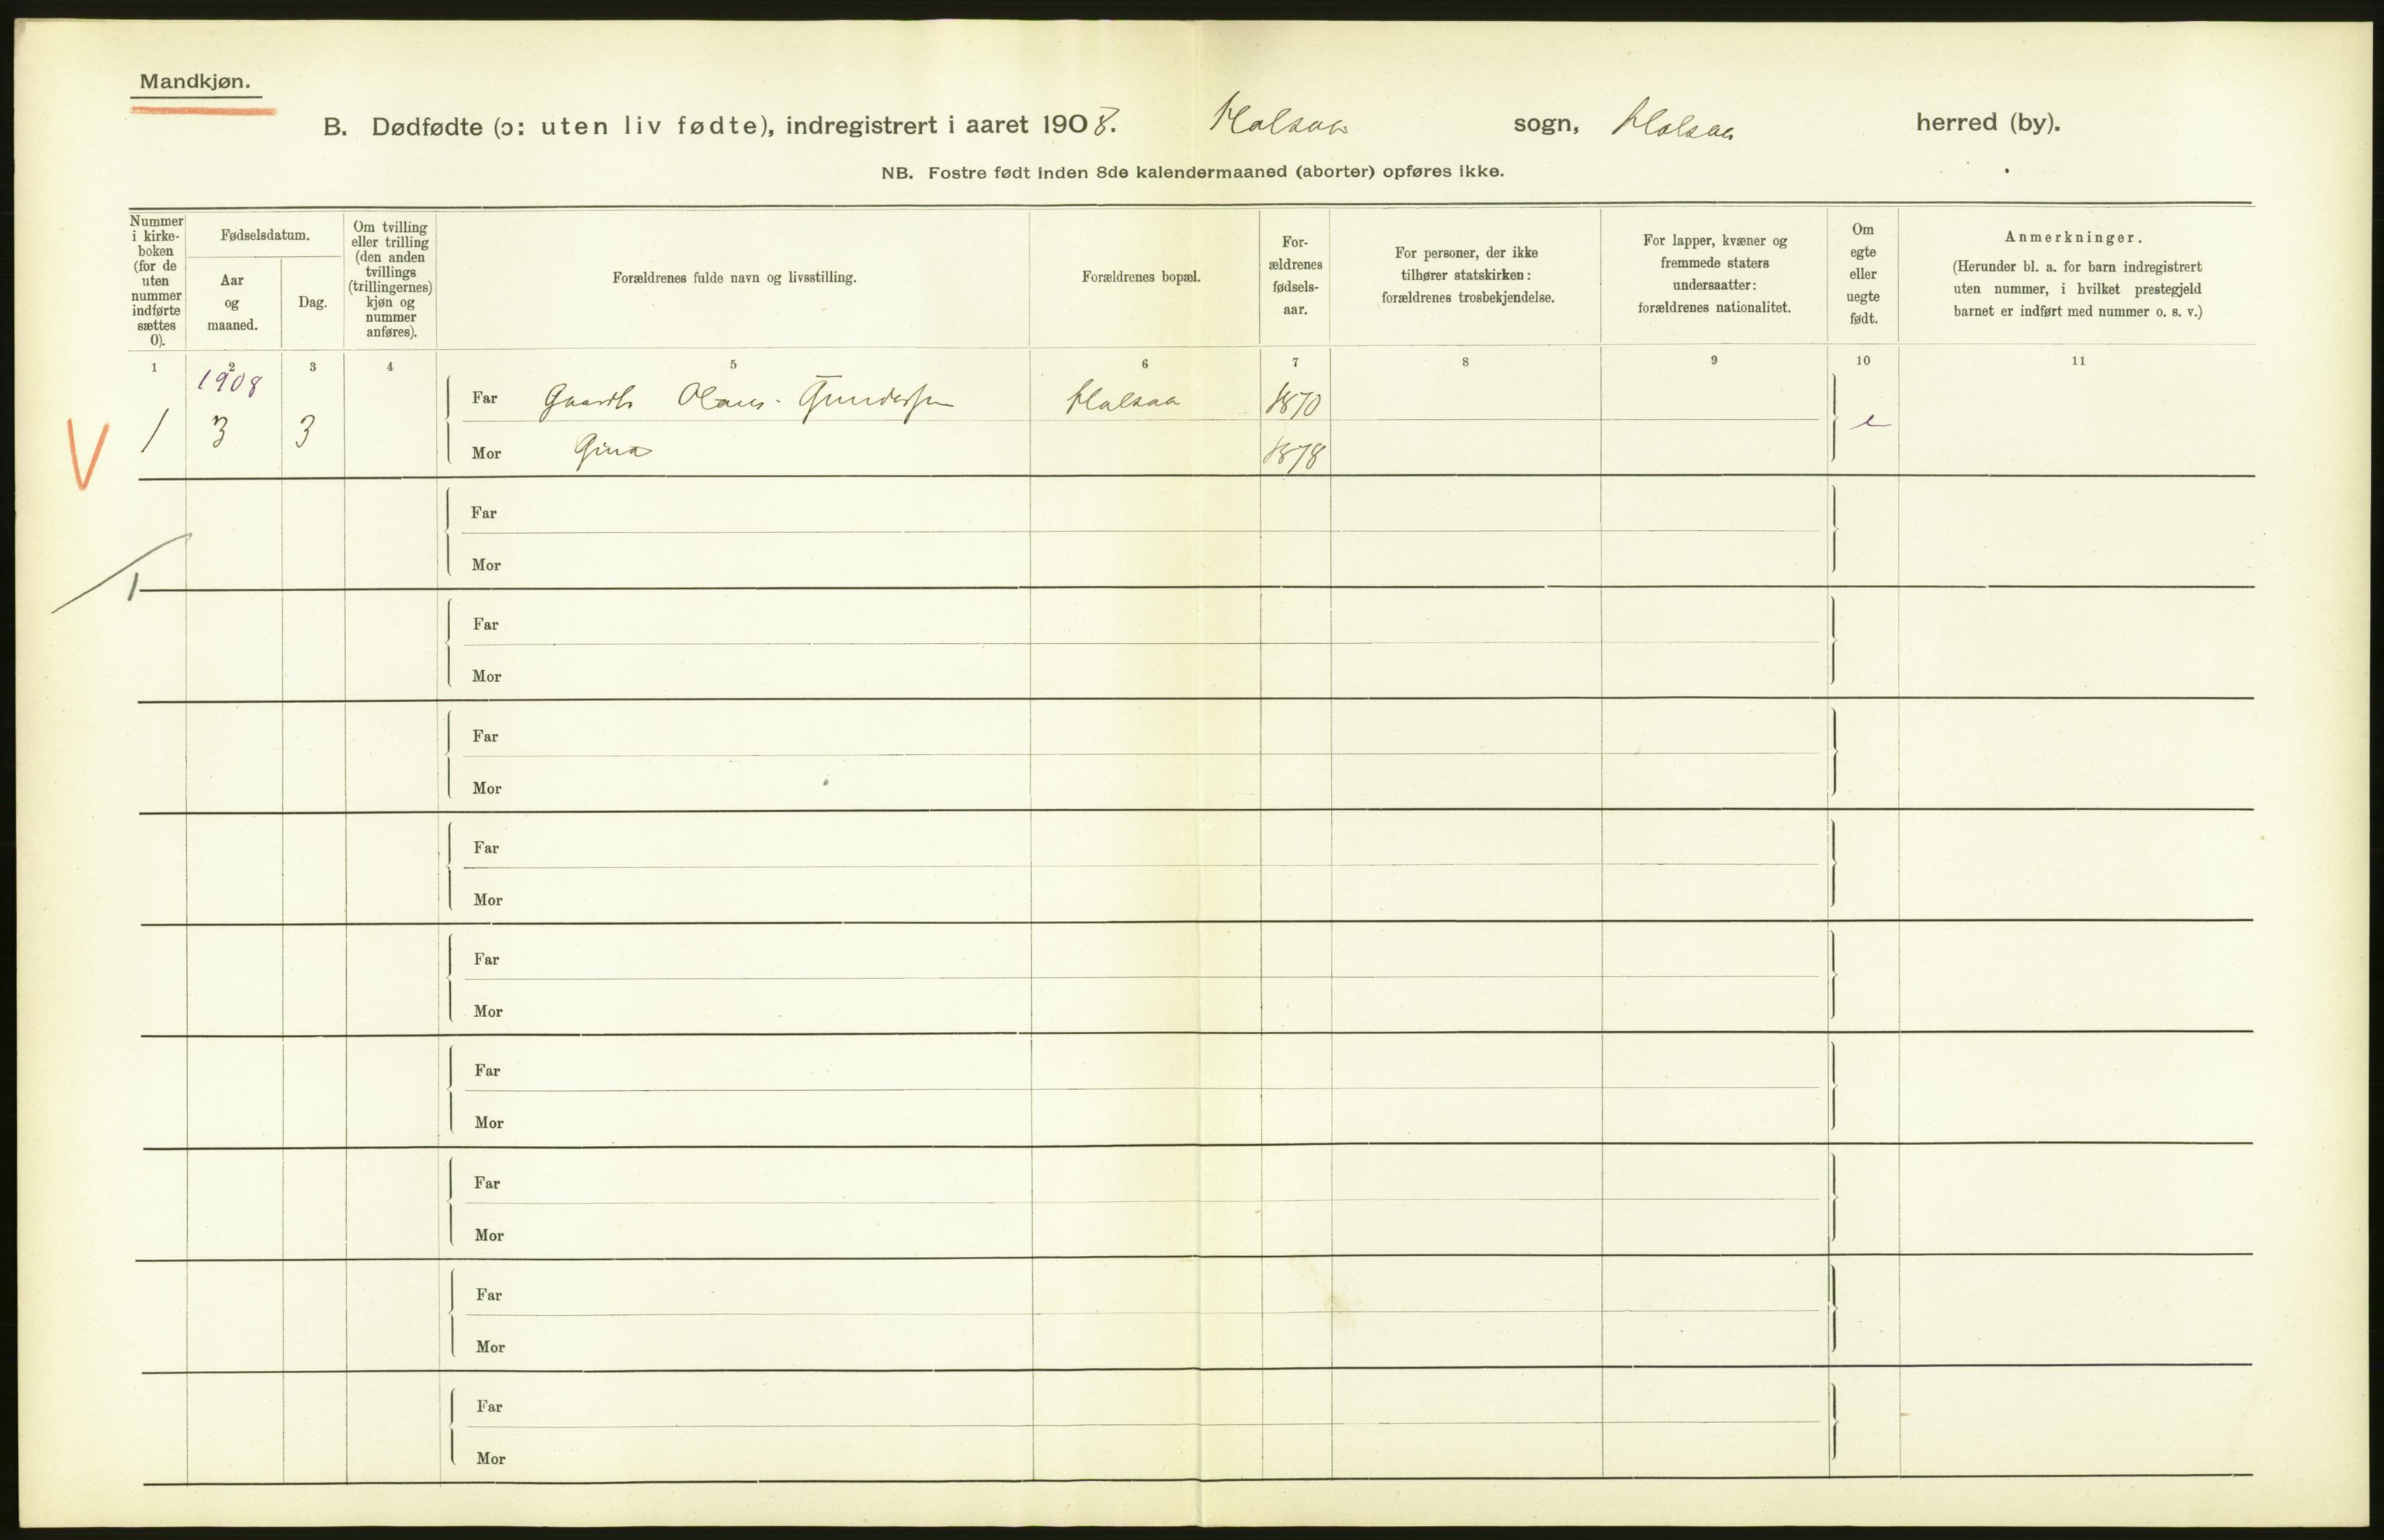 Mandkjøn.
B. Dødfødte (ɔ: uten liv fødte), indregistrert i aaret 1908. Halsaa sogn, Halsaa herred (by).
NB. Fostre født inden 8de kalendermaaned (aborter) opføres ikke.
Nummer
i kirke-
boken
(for de
uten
nummer
indførte
sættes
0).
Fødselsdatum.
Aar
og
maaned.
Dag.
Om tvilling
eller trilling
(den anden
tvillings
(trillingernes)
kjøn og
nummer
anføres).
Forældrenes fulde navn og livsstilling.
Forældrenes bopæl.
For-
ældrenes
fødsels-
aar.
For personer, der ikke
tilhører statskirken:
forældrenes trosbekjendelse.
For lapper, kvæner og
fremmede staters
undersaatter:
forældrenes nationalitet.
Om
egte
eller
uegte
født.
Anmerkninger.
(Herunder bl. a. for barn indregistrert
uten nummer, i hvilket prestegjeld
barnet er indført med nummer o. s. v.)
1 2 3 4 5 6 7 8 9 10 11
1908
Far Gaardb Olaus Gundersen Halsaa 1870
V 1 3 3 e
Mor Gina 1878
Far
Mor
1
Far
Mor
Far
Mor
Far
Mor
Far
Mor
Far
Mor
Far
Mor
Far
Mor
Far
Mor